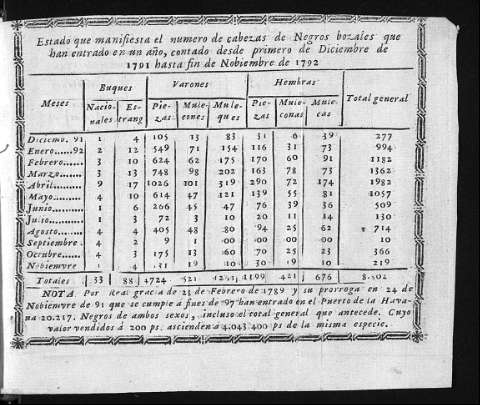 Estado que manifiesta el numero de cabezas de Negros bozales que
han entrado en un año, contado desde primero de Diciembre de
1791 hasta fin de Nobiembre de 1792
Meses Buques Varones Hembras Total general
Nacionales Estrang Piezas Muleones Muleques Piezas Muleconas Mulecas
Diciemb. 91 1 4 105 13 83 31 6 39 277
Enero......92 2 12 549 71 154 116 31 73 994
Febrero...... 3 10 624 62 175 170 60 91 1182
Marzo........ 3 13 748 98 202 163 78 73 1362
Abril......... 9 17 1026 101 319 290 72 174 1982
Mayo......... 4 10 614 47 121 139 55 81 1057
Junio......... 1 6 266 45 47 76 39 36 509
Julio......... 1 3 72 3 10 20 11 14 130
Agosto....... 4 4 405 48 80 94 25 62 714
Septiembre . 4 2 9 1 00 00 00 00 10
Octubre...... 4 3 175 13 60 70 25 23 366
Nobiemvre 1 4 19 10 30 19 10 219
Totales 33 88 4724 521 1199 421 676
NOTA. Por Real gracia de 23 de Febrero de 1789 y su prorroga en 24 de
Nobiemvre de 91 que se cumple á fines de 97 han entrado en el Puerto de la Hava-
na 20.217. Negros de ambos sexos, incluso el total general que antecede. Cuyo
valor vendidos á 200 ps. ascienden á 4.043.400 ps de la misma especie.